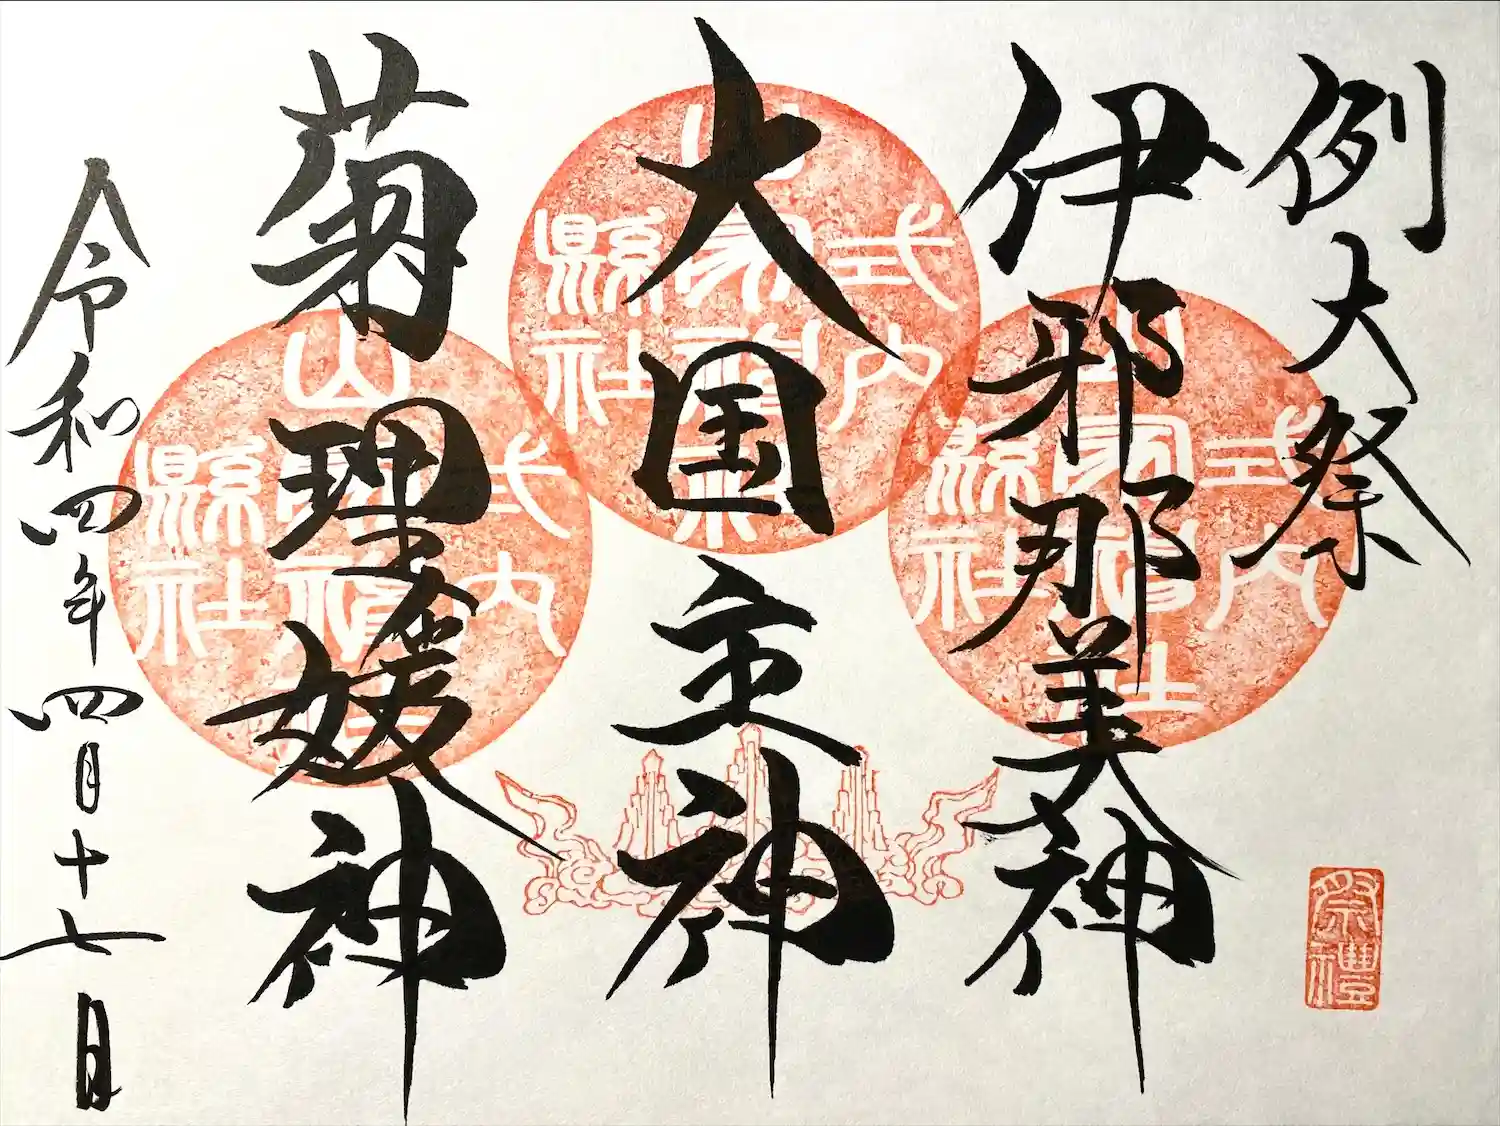 例大祭
伊邪那美神
大国主神
菊理媛神
令和四年四月十七日
式内
山家神社
縣社
式内
山家神社
縣社
式内
山家神社
縣社
祭禮